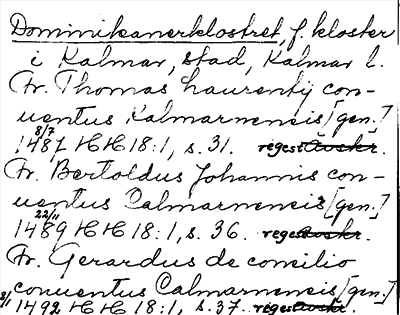 Dominikanerklostret, f. kloster
i Kalmar, stad, Kalmar l.
Fr. Thomas Laurentij con-
uentus Kalmarnensis [gen.]
8/7 1487 HH 18:1, s. 31. regest avskr.
Fr. Bertoldus Johannis con-
uentus Calmarnensis [gen.]
22/11 1489 HH 18:1, s. 36. regest avskr.
Fr. Gerardus de consilio
conuentus Calmarnensis [gen.]
1492 HH 18:1, s. 37. regest avskr.